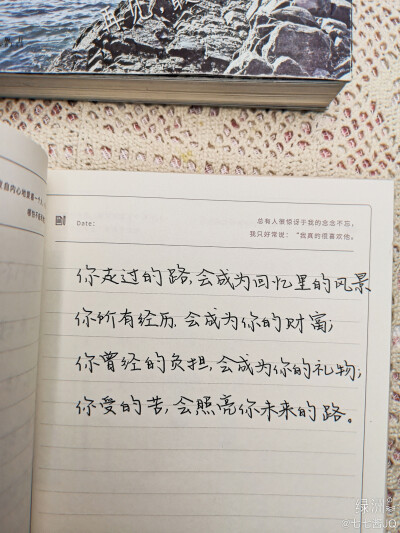 Date:
总有人惊惊讶于我的念念不忘，
我只好常说："我真的很喜欢他。
你走过的路,会成为回忆里的风景
你所有经历,会成为你的财富;
你曾经的负担,会成为你的礼物;
你受的苦,会照亮你未来的路。
绿洲
@七七酱JQ